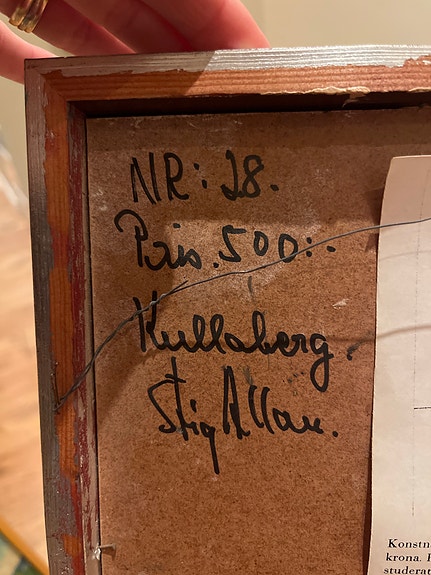 NR: 28.
Pris. 500:-.
Kullaberg.
Stig Allan.
Konstn
krona. F
studerat